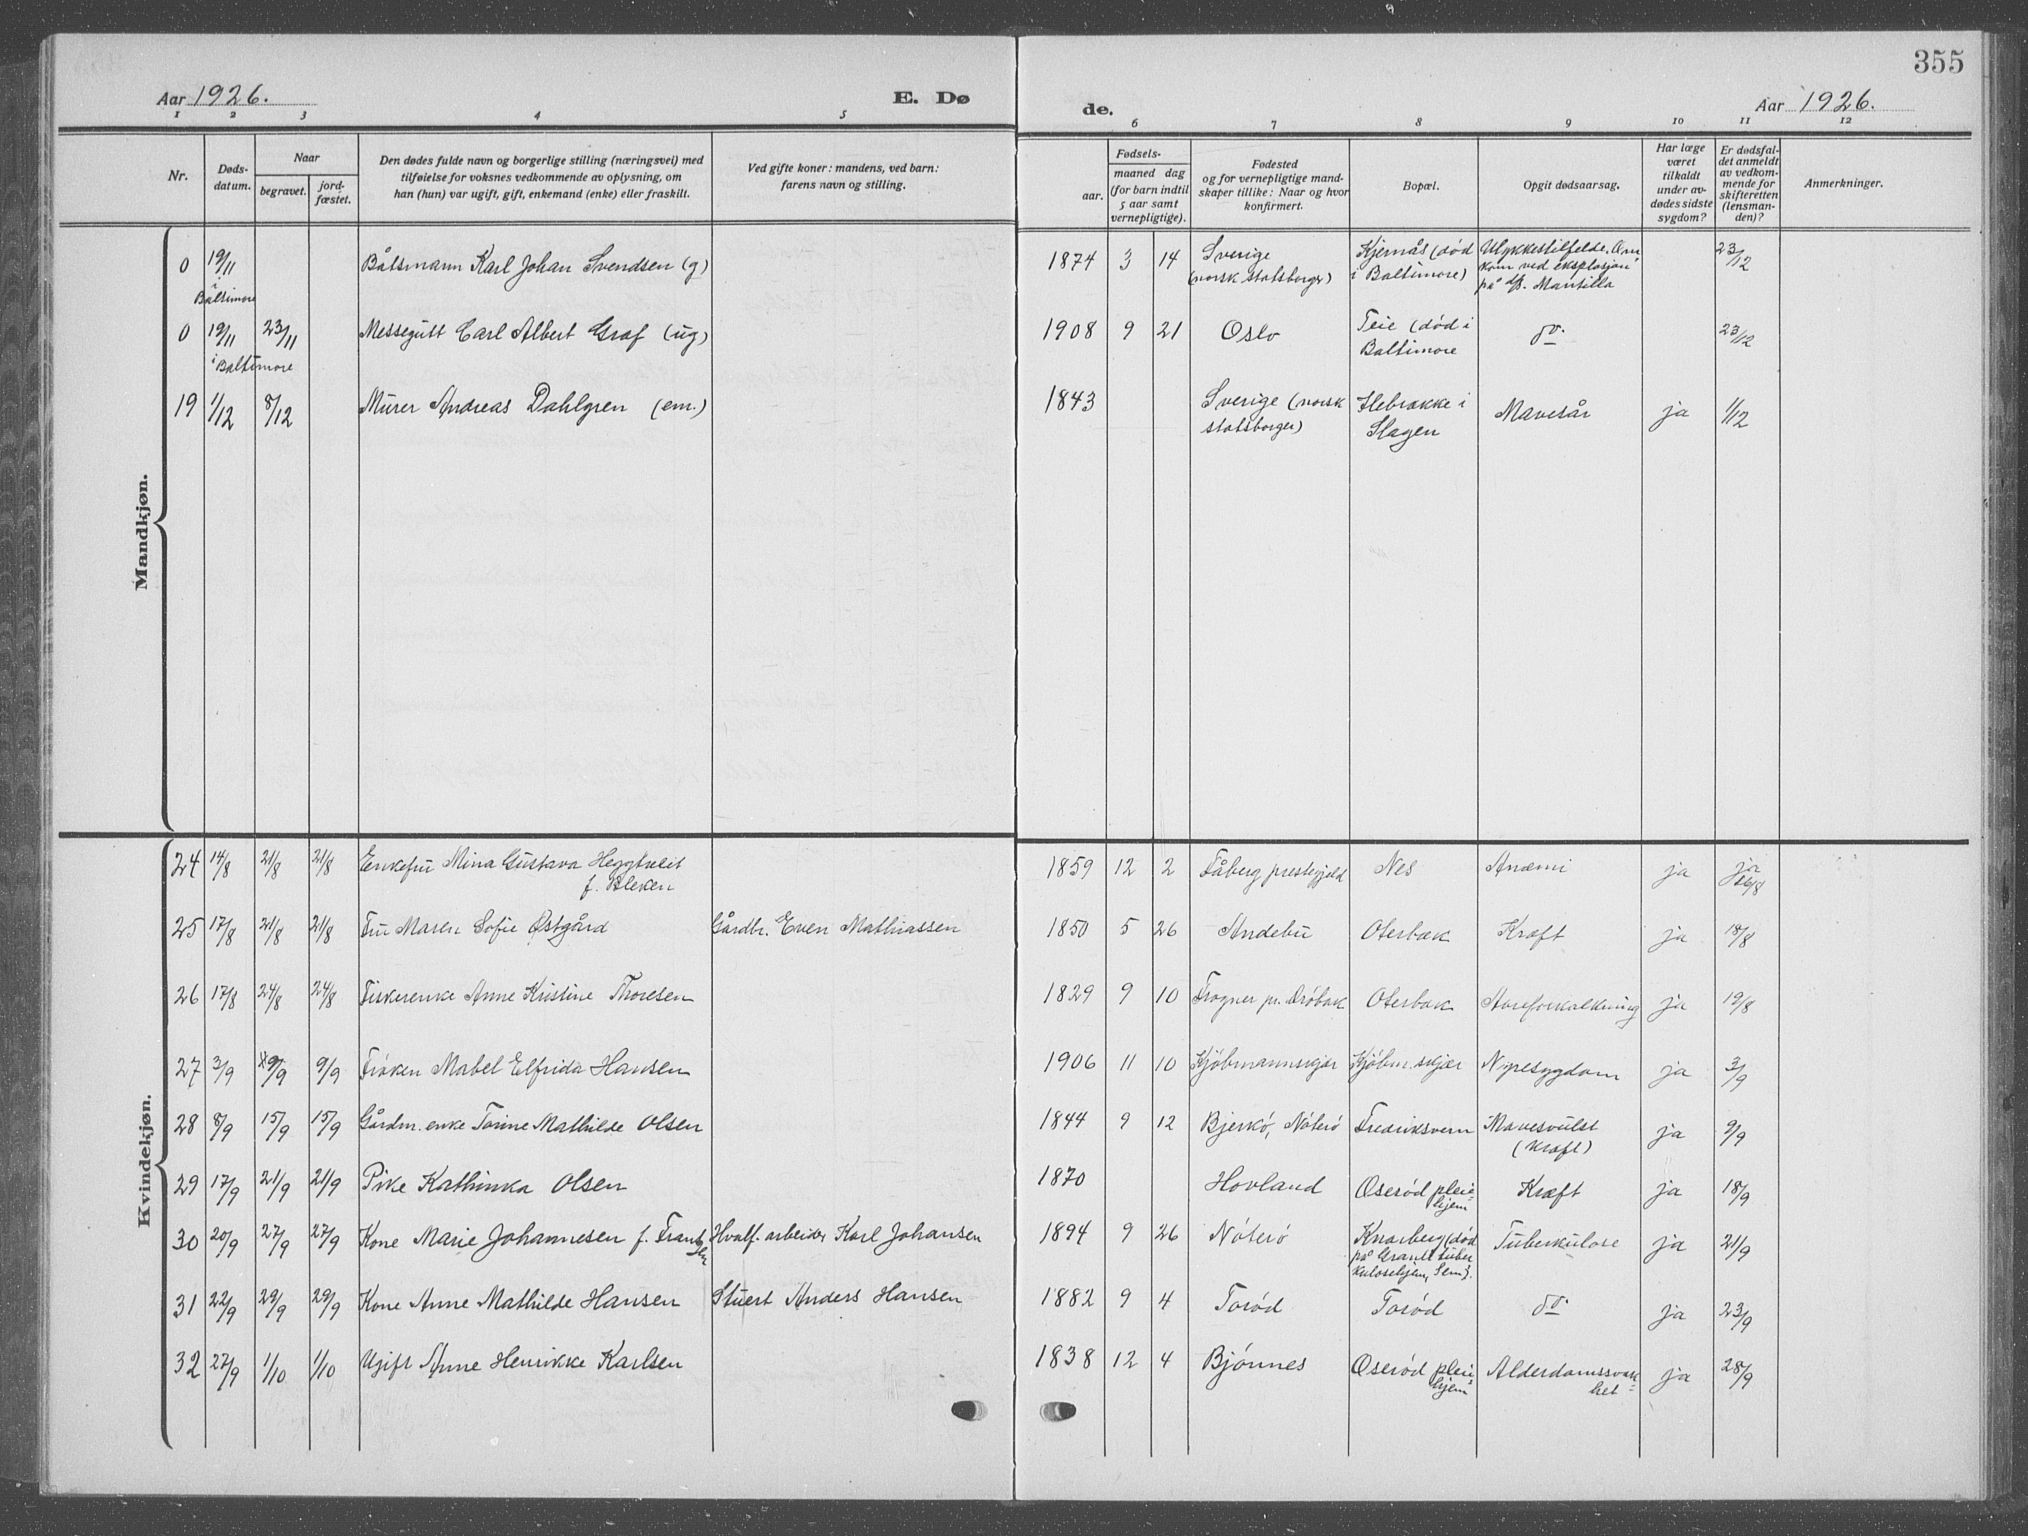 355
Aar 1926.
E. Dø
de.
Aar 1926.
1 2 3 4 5 6 7 8 9 10 11 12
Nr.
Døds-
datum.
Naar
begravet.
jord-
fæstet.
Den dødes fulde navn og borgerlige stilling (næringsvei) med
tilføielse for voksnes vedkommende av oplysning, om
han (hun) var ugift, gift, enkemand (enke) eller fraskilt.
Ved gifte koner: mandens, ved barn:
farens navn og stilling.
Fødsels-
aar.
maaned dag
(for barn indtil
5 aar samt
vernepligtige).
Fødested
og for vernepligtige mand-
skaper tillike: Naar og hvor
konfirmert.
Bopæl.
Opgit dødsaarsag.
Har læge
været
tilkaldt
under av-
dødes sidste
sygdom?
Er dødsfal-
det anmeldt
av vedkom-
mende for
skifteretten
(lensman-
den)?
Anmerkninger.
Mandkjøn.
0 19/11 i Baltimore Båtsmann Karl Johan Svendsen (g) 1874 3 14 Sverige (norsk statsborger) Kjernås (død i Baltimore) Ulykkestilfelde. Om kom ved eksplosjon på d/s. Mantilla 23/12
0 19/11 i Baltimore 23/11 Messegutt Carl Albert Graf (ug) 1908 9 21 Oslo Teie (død i Baltimore do. 23/12
19 1/12 8/12 Murer Andreas Dahlgren (em.) 1843 Sverige (norsk statsborger) Ilebrække i Slagen Mavesår ja 1/12
Kvindekjøn.
24 14/8 21/8 21/8 Enkefru Mina Gustava Heggtveit f. Bleken 1859 12 2 Fåberg prestegjeld Nes Anæmi ja ja 16/8
25 17/8 21/8 21/8 Fru Maren Sofie Østgård Gårdbr. Even Mathiassen 1850 5 26 Andebu Oterbæk Kræft ja 18/8
26 17/8 24/8 24/8 Fiskerenke Anne Kristine Thoresen 1829 9 10 Frogner pr. Drøbak Oterbæk Aareforkalkning ja 19/8
27 3/9 9/9 9/9 Frøken Mabel Elfrida Hansen 1906 11 10 Kjøbmannskjær Kjøbm.skjær Nyresygdom ja 3/9
28 8/9 15/9 15/9 Gårdm. enke Torine Mathilde Olsen 1844 9 12 Bjerkø, Nøterø Fredriksvern Mavesvulst (kræft) ja 9/9
29 17/9 21/9 21/9 Pike Kathinka Olsen 1870 Hovland Oserød pleie- hjem Kræft ja 18/9
30 20/9 27/9 27/9 Kone Marie Johannesen f. Frantsen Hvalf. arbeider Karl Johansen 1894 9 26 Nøterø Knarberg (død på Granli tuber kulosehjem, Sem). Tuberkulose ja 21/9
31 22/9 29/9 29/9 Kone Anne Mathilde Hansen Stuert Anders Hansen 1882 9 4 Torød Torød do. ja 23/9
32 27/9 1/10 1/10 Ugift Anne Henrikke Karlsen 1838 12 4 Bjønnes Oserød pleie- hjem Alderdomssvak- het ja 28/9